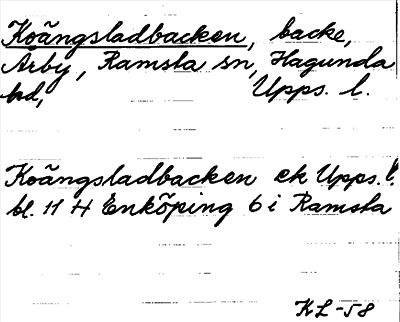 Koängsladbacken, backe,
Årby, Ramsta sn, Hagunda
hd, Upps. l.
Koängsladbacken ek Upps. l.
bl. 11 H Enköping 6 i Ramsta
KL-58